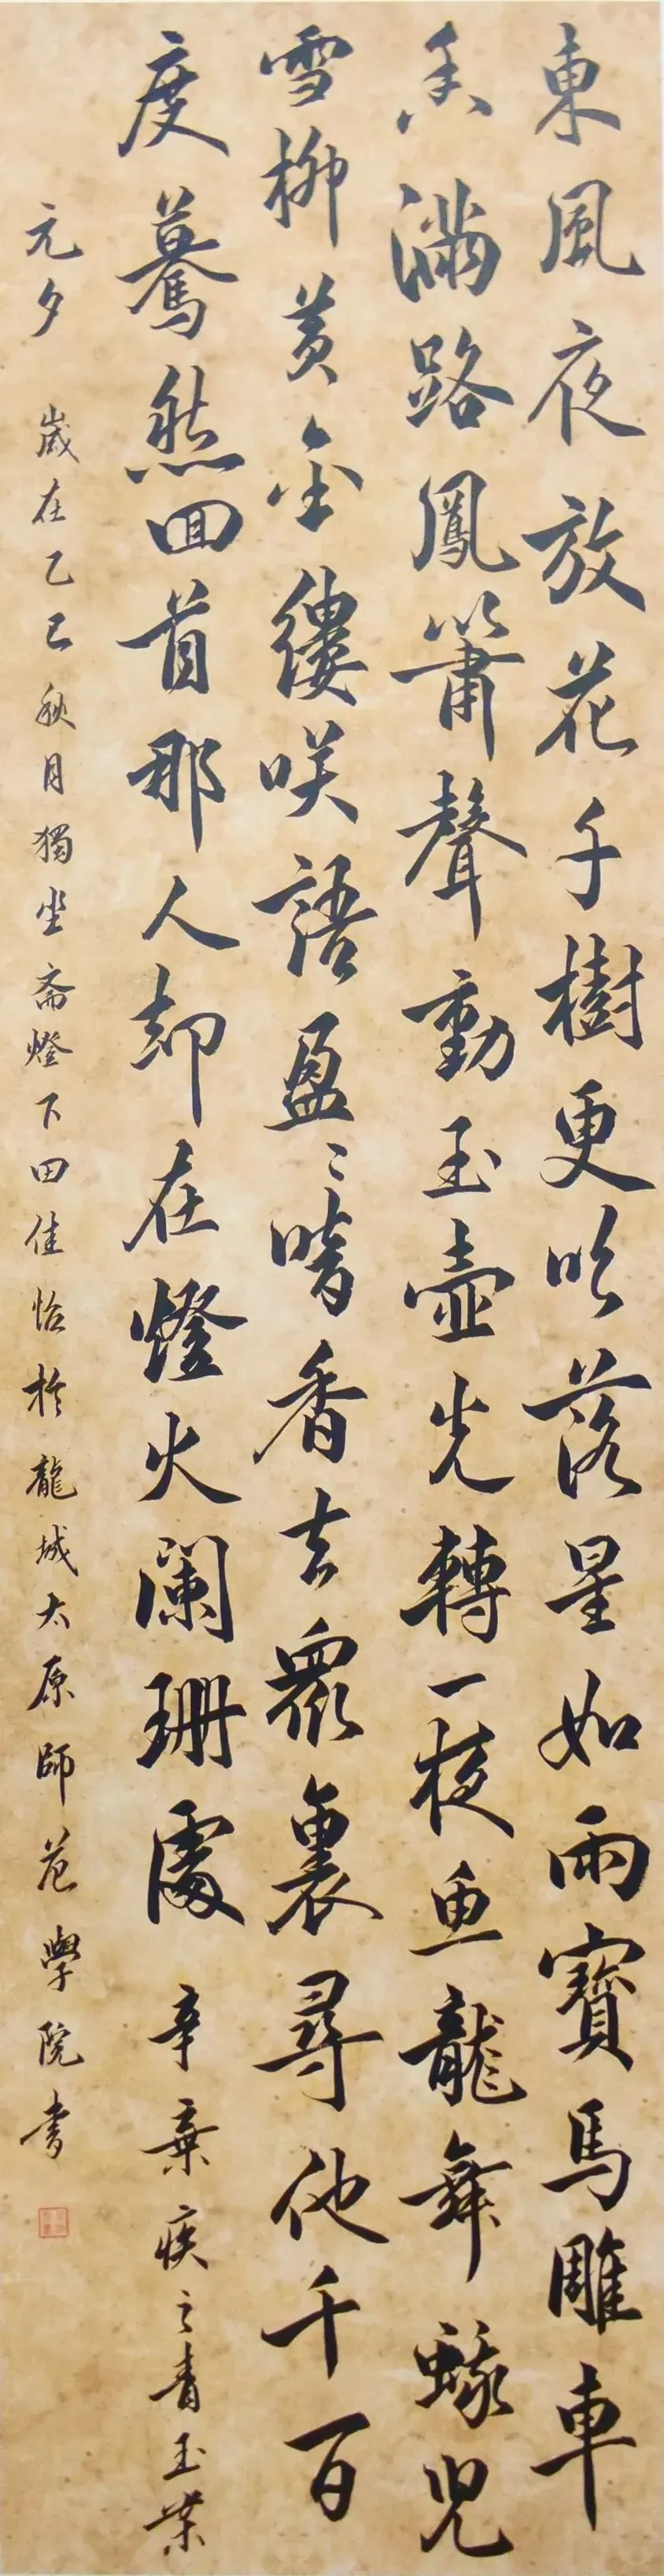 東風夜放花千樹更吹落星如雨寶馬雕車
香滿路鳳簫聲動玉壺光轉一夜魚龍舞蛾兒
雪柳黃金縷笑語盈〻暗香去眾裏尋他千百
度驀然回首那人却在燈火闌珊處 辛棄疾之青玉案
元夕 歲在乙巳秋月獨坐斋燈下田佳怡於龍城太原師范學院書